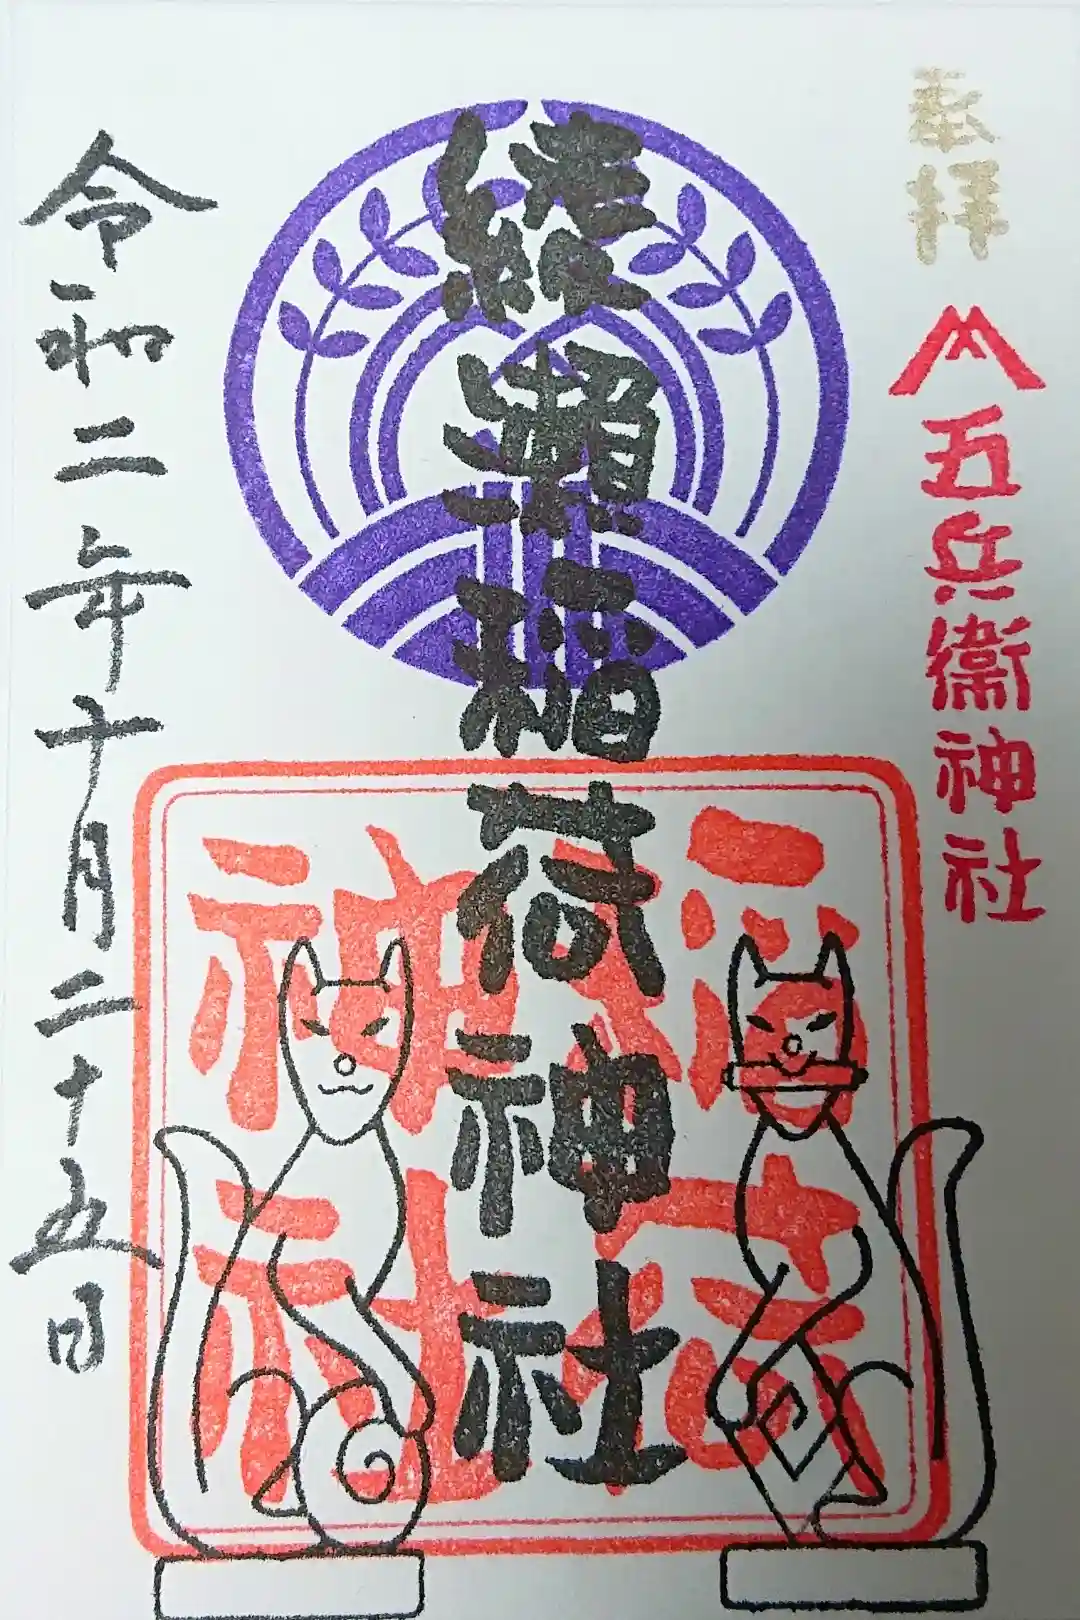 奉拝
五兵衛神社
綾瀬稲荷神社
神社
令和二年十月二十五日